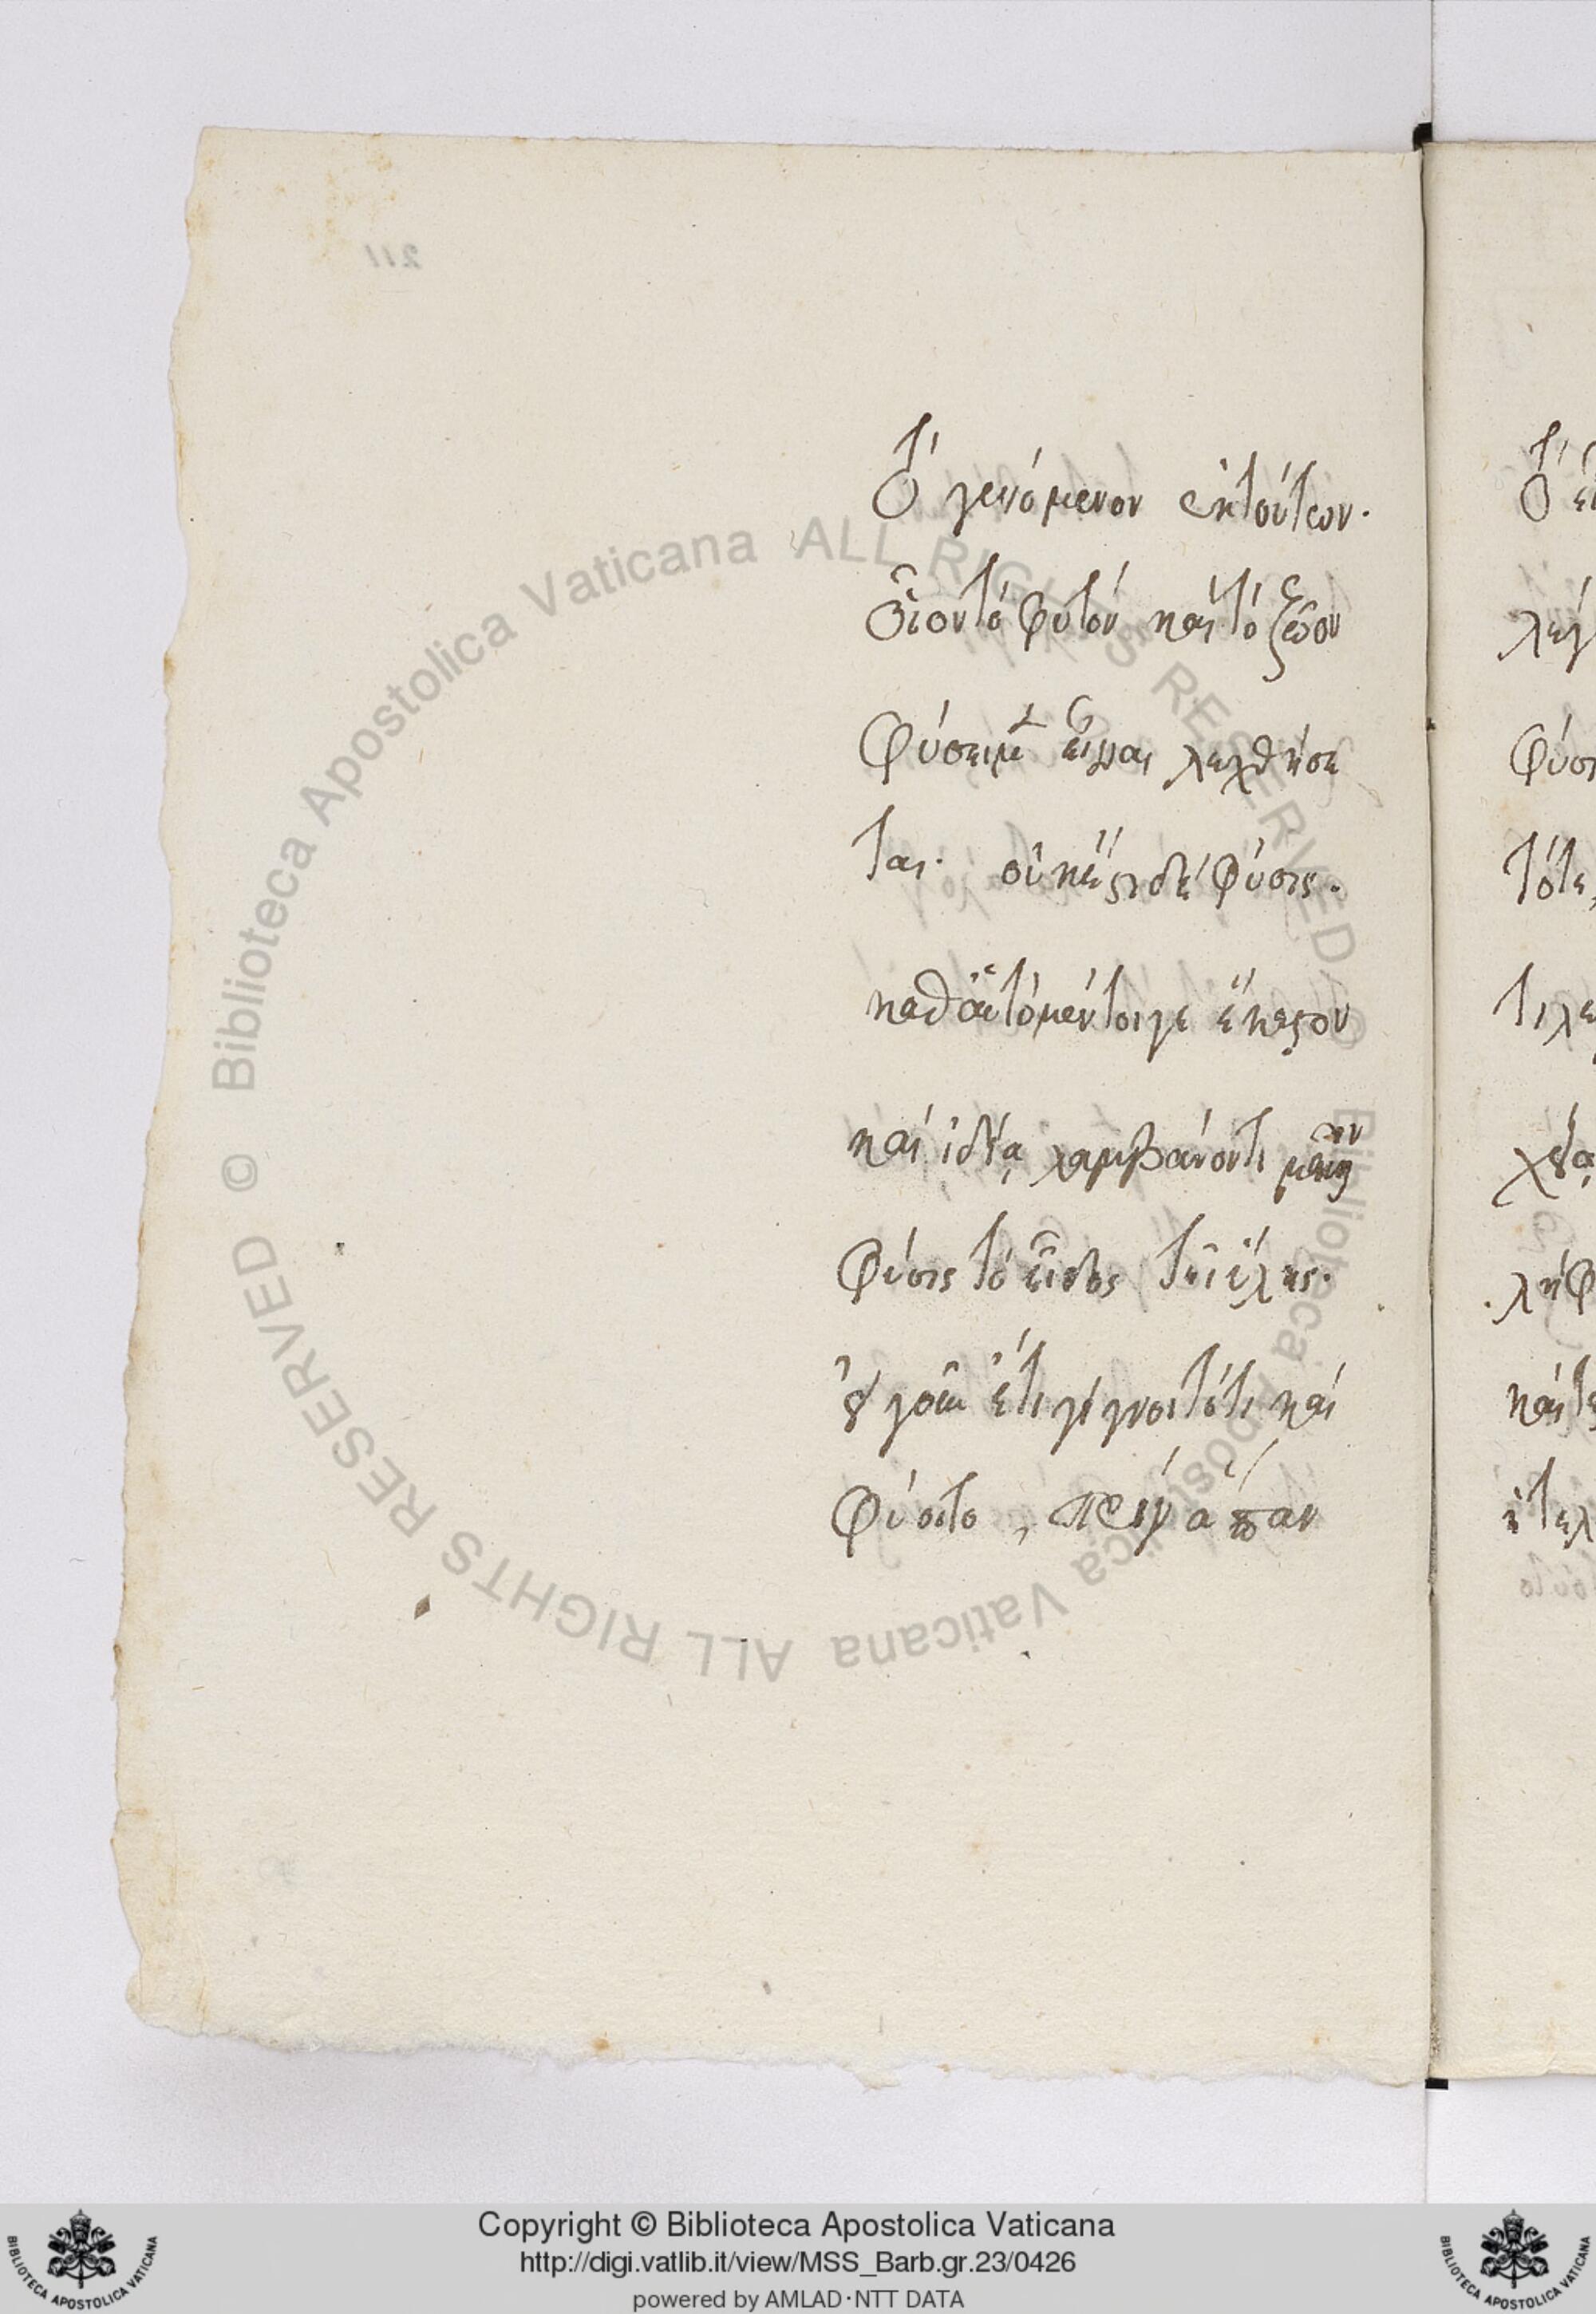 211
Τὸ γενόμενον ἐκ τούτων.
οἷον τὸ φυτὸν καὶ τὸ ζῶον
φύσει μὲν εἶναι λεχθήσε
ται. οὐκ ἔστι δὲ φύσις.
καθ αὑτὸ μέντοι γε ἕκαστον
καὶ ἰδίᾳ λαμβάνοντι μᾶλλον
φύσις τὸ εἶδος τῆς ὕλης.
οὐ γοῦν ἔτι γίγνοιτό τι καὶ
φύοιτο, πρὶν ἅπαν
© Biblioteca Apostolica Vaticana ALL RIGHTS RESERVED © Biblioteca Apostolica Vaticana ALL RIGHTS RESERVED
Τὸ
λεγ
φύσι
τότε,
τι λε
λήφ
καὶ τε
Copyright © Biblioteca Apostolica Vaticana
http://digi.vatlib.it/view/MSS_Barb.gr.23/0426
powered by AMLAD·NTT DATA
BIBLIOTECA APOSTOLICA VATICANA
BIBLIOTECA APOSTOLICA VATICANA